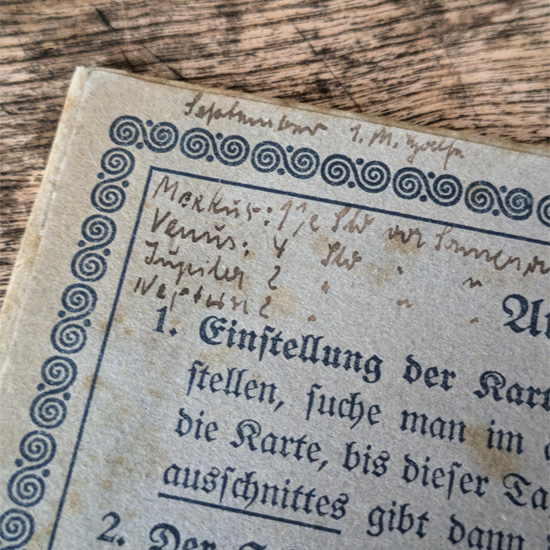 September 1. M. Hälfte
Merkur: 1½ Std vor Sonnen
Venus: 4 Std " "
Jupiter 2 " " "
Neptun 2 " " "
1. Einstellung der Kart
stellen, suche man im
die Karte, bis dieser Ta
ausschnittes gibt dann
2. Der